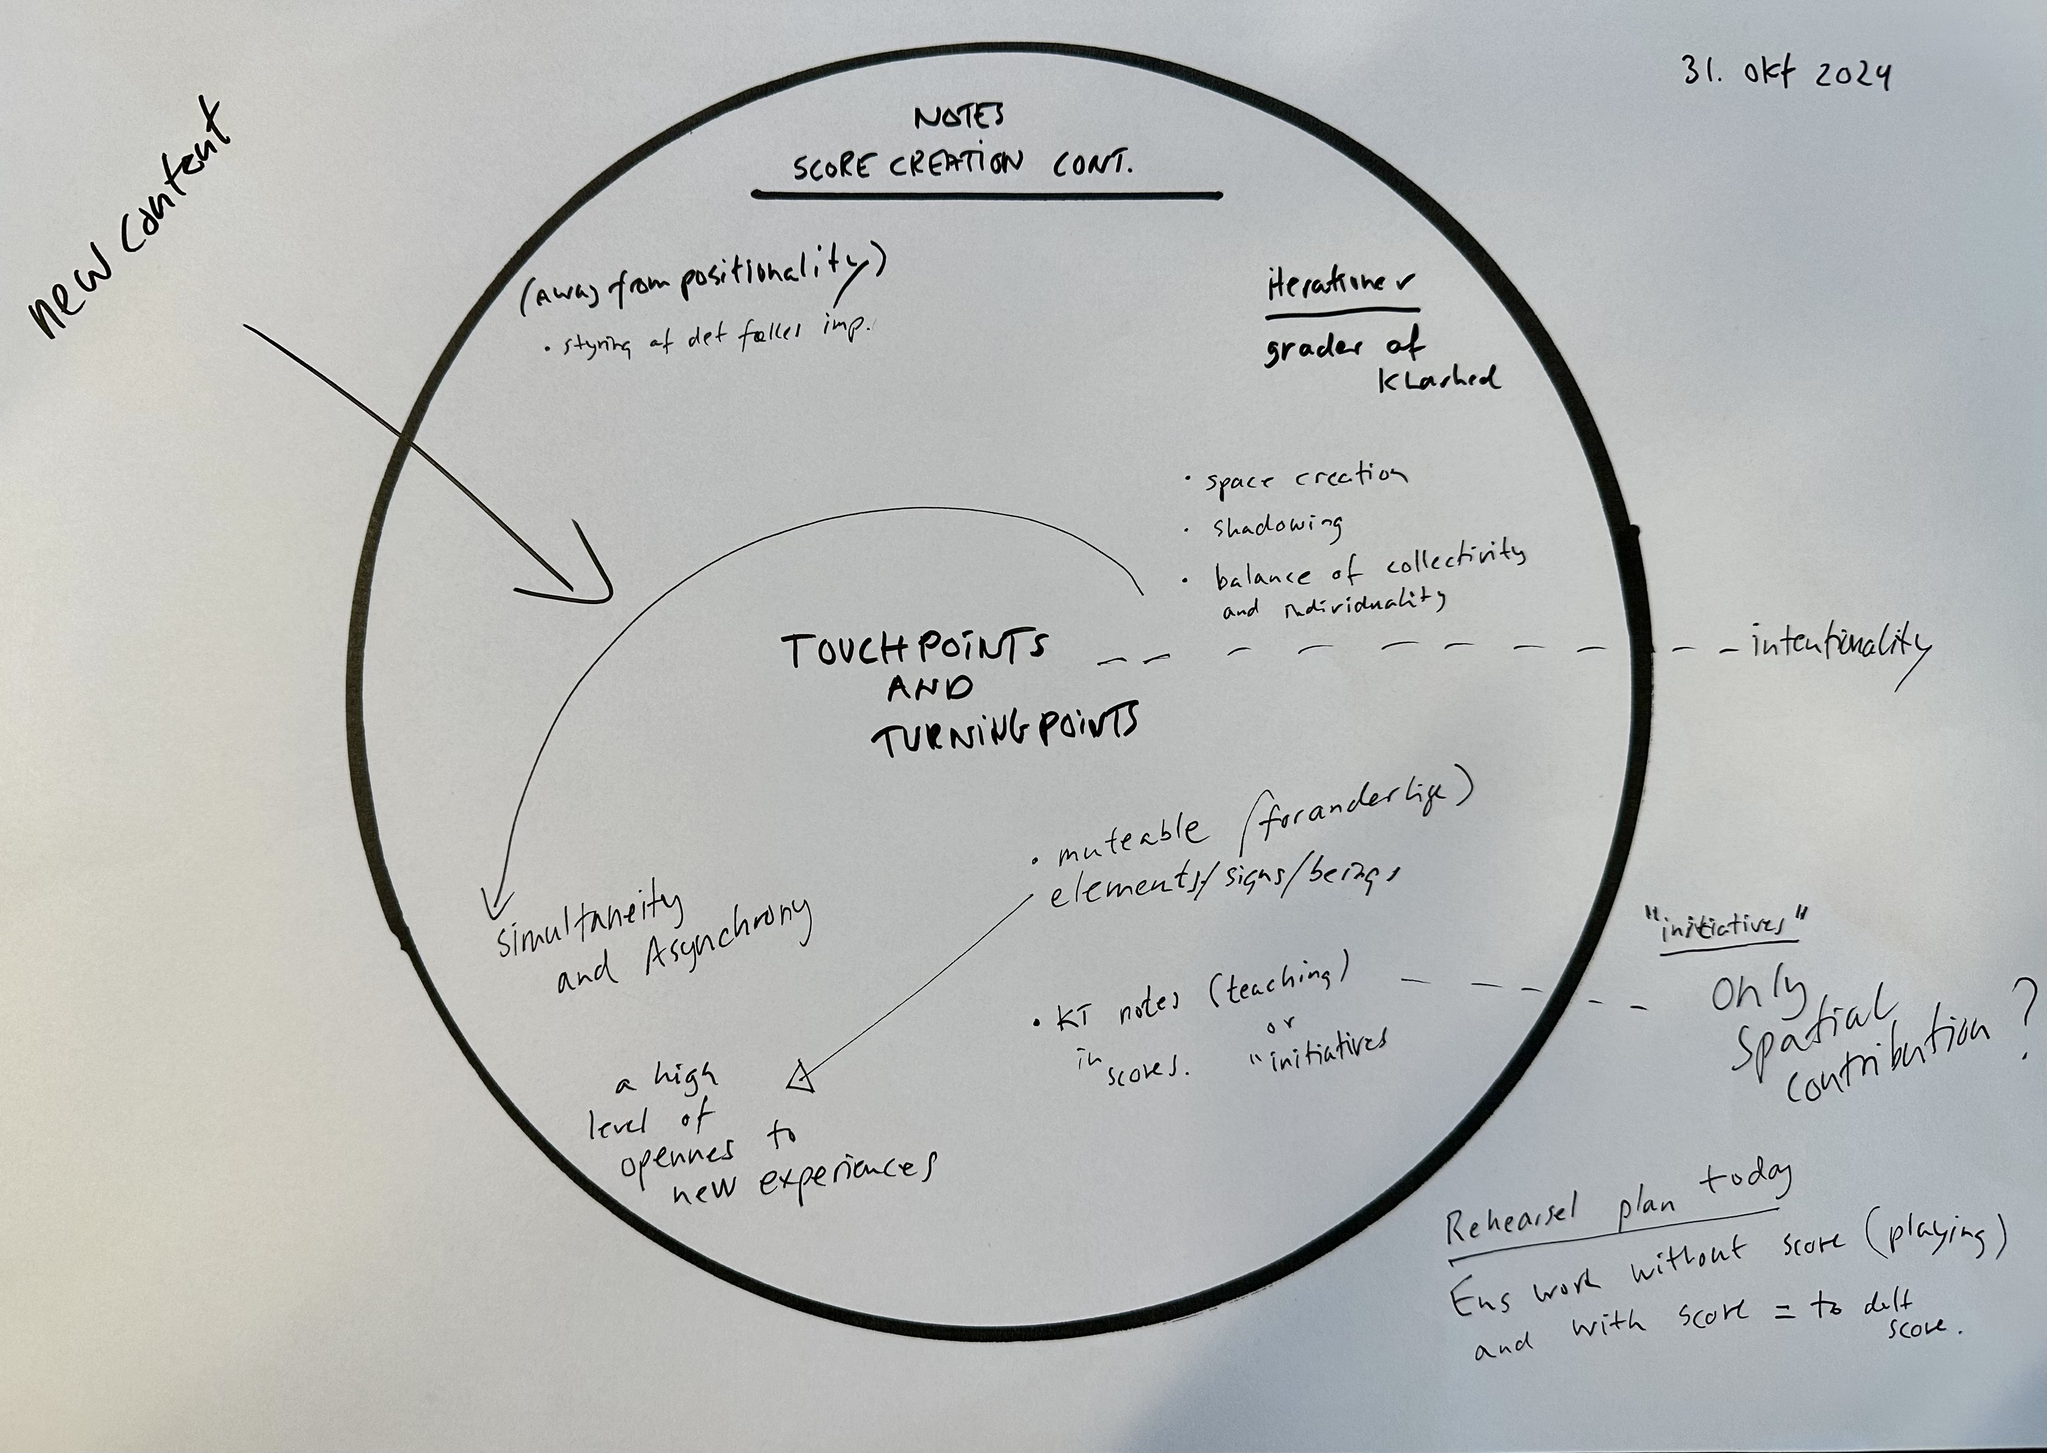 31. okt 2024
NOTES
SCORE CREATION CONT.
new content
(away from positionality)
• styring af det fælles imp.
iterationer
grader af
klarhed
• space creation
• shadowing
• balance of collectivity
and individuality
TOUCHPOINTS
AND
TURNINGPOINTS
intentionality
• muteable (foranderlige)
elements/signs/beings
simultaneity
and Asynchrony
• KT notes (teaching)
or
in scores. "initiatives
"initiatives"
only
spatial
contribution?
a high
level of
opennes to
new experiences
Rehearsel plan today
Ens work without score (playing)
and with score = to
score.